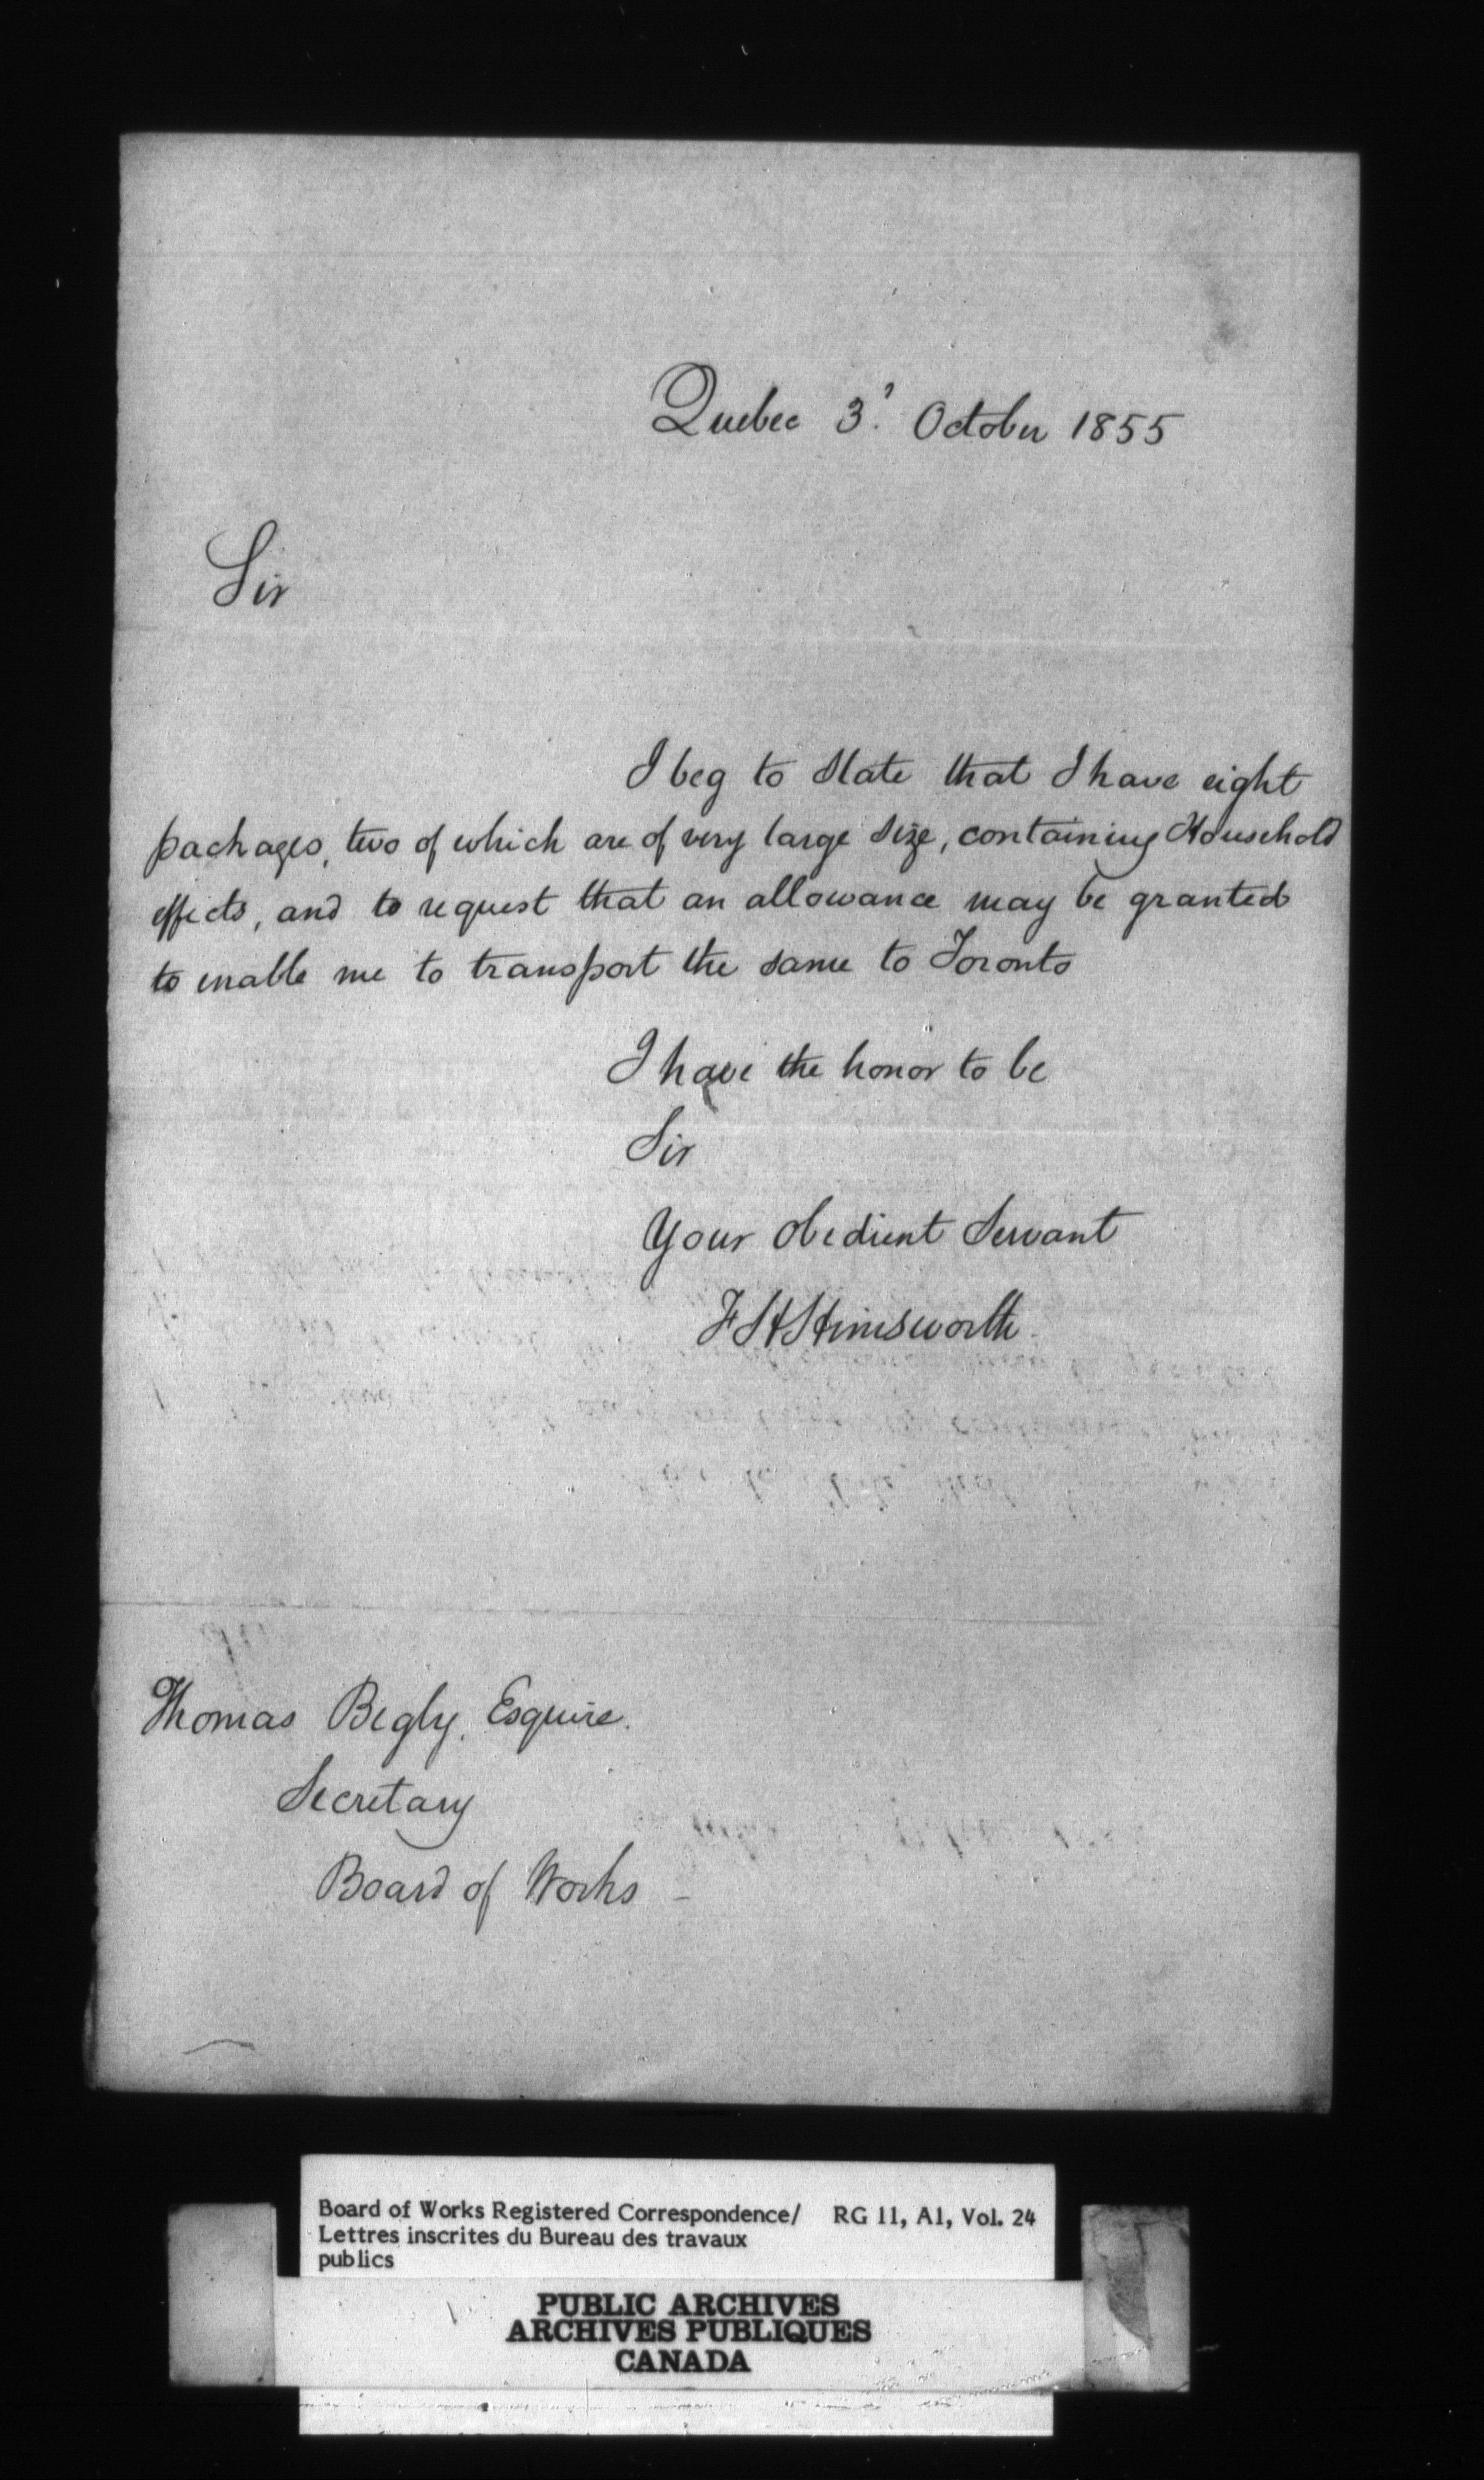 Quebec 3d. October 1855
Sir
I beg to state that I have eight
packages, two of which are of very large size, containing Household
effects, and to request that an allowance may be granted
to enable me to transport the same to Toronto
I have the honor to be
Sir
Your obedient Servant
F H Himsworth
Thomas Begly, Esquire.
Secretary
Board of Works -
Board of Works Registered Correspondence/ RG 11, A1, Vol. 24
Lettres inscrites du Bureau des travaux
publics
PUBLIC ARCHIVES
ARCHIVES PUBLIQUES
CANADA